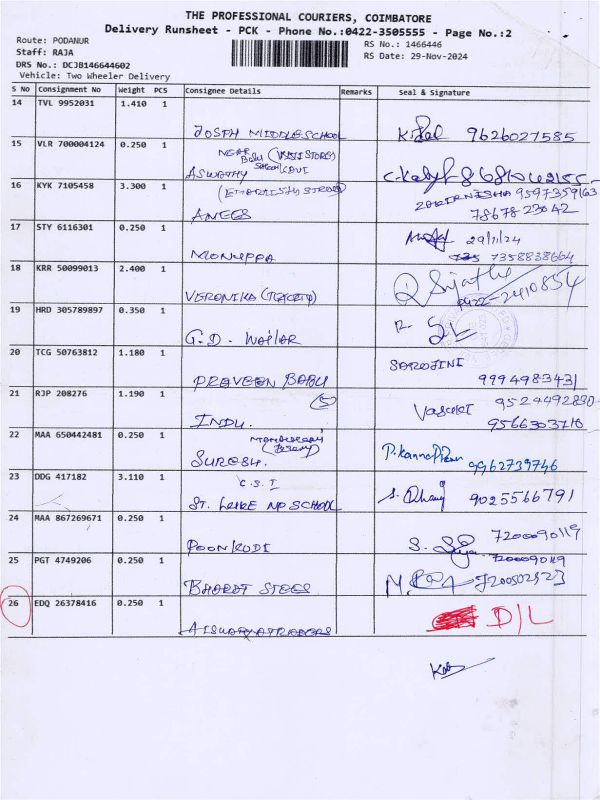 THE PROFESSIONAL COURIERS, COIMBATORE
Delivery Runsheet - PCK - Phone No.:0422-3505555 - Page No.:2
Route: PODANUR
RS No.: 1466446
Staff: RAJA
RS Date: 29-Nov-2024
DRS No.: DCJB146644602
Vehicle: Two Wheeler Delivery
S No Consignment No Weight PCS Consignee Details Remarks Seal & Signature
14 TVL 9952031 1.410 1
MIDDLE SCHOOL 9626027585
15 VLR 700004124 0.250 1
NEAR
ASWATHY
16 KYK 7105458 3.300 1
9597359163
ANEES 78678 23042
17 STY 6116301 0.250 1
29/11/24
MONUPPA 7358838664
18 KRR 50099013 2.400 1
VERONIKA 0422-2410854
19 HRD 305789897 0.350 1
G.D.
20 TCG 50763812 1.180 1
SAROJINI
PRAVEEN BABU 9994983431
21 RJP 208276 1.190 1
9524492830
INDU.
22 MAA 650442481 0.250 1
SURESH. 9962739746
23 DDG 417182 3.110 1
C.S.I
ST. LUKE NP SCHOOL 9025566791
24 MAA 867269671 0.250 1
7200090119
POONKODI
25 PGT 4749206 0.250 1
7200090119
BHARAT
26 EDQ 26378416 0.250 1
D/L
AISWARYA TRADERS